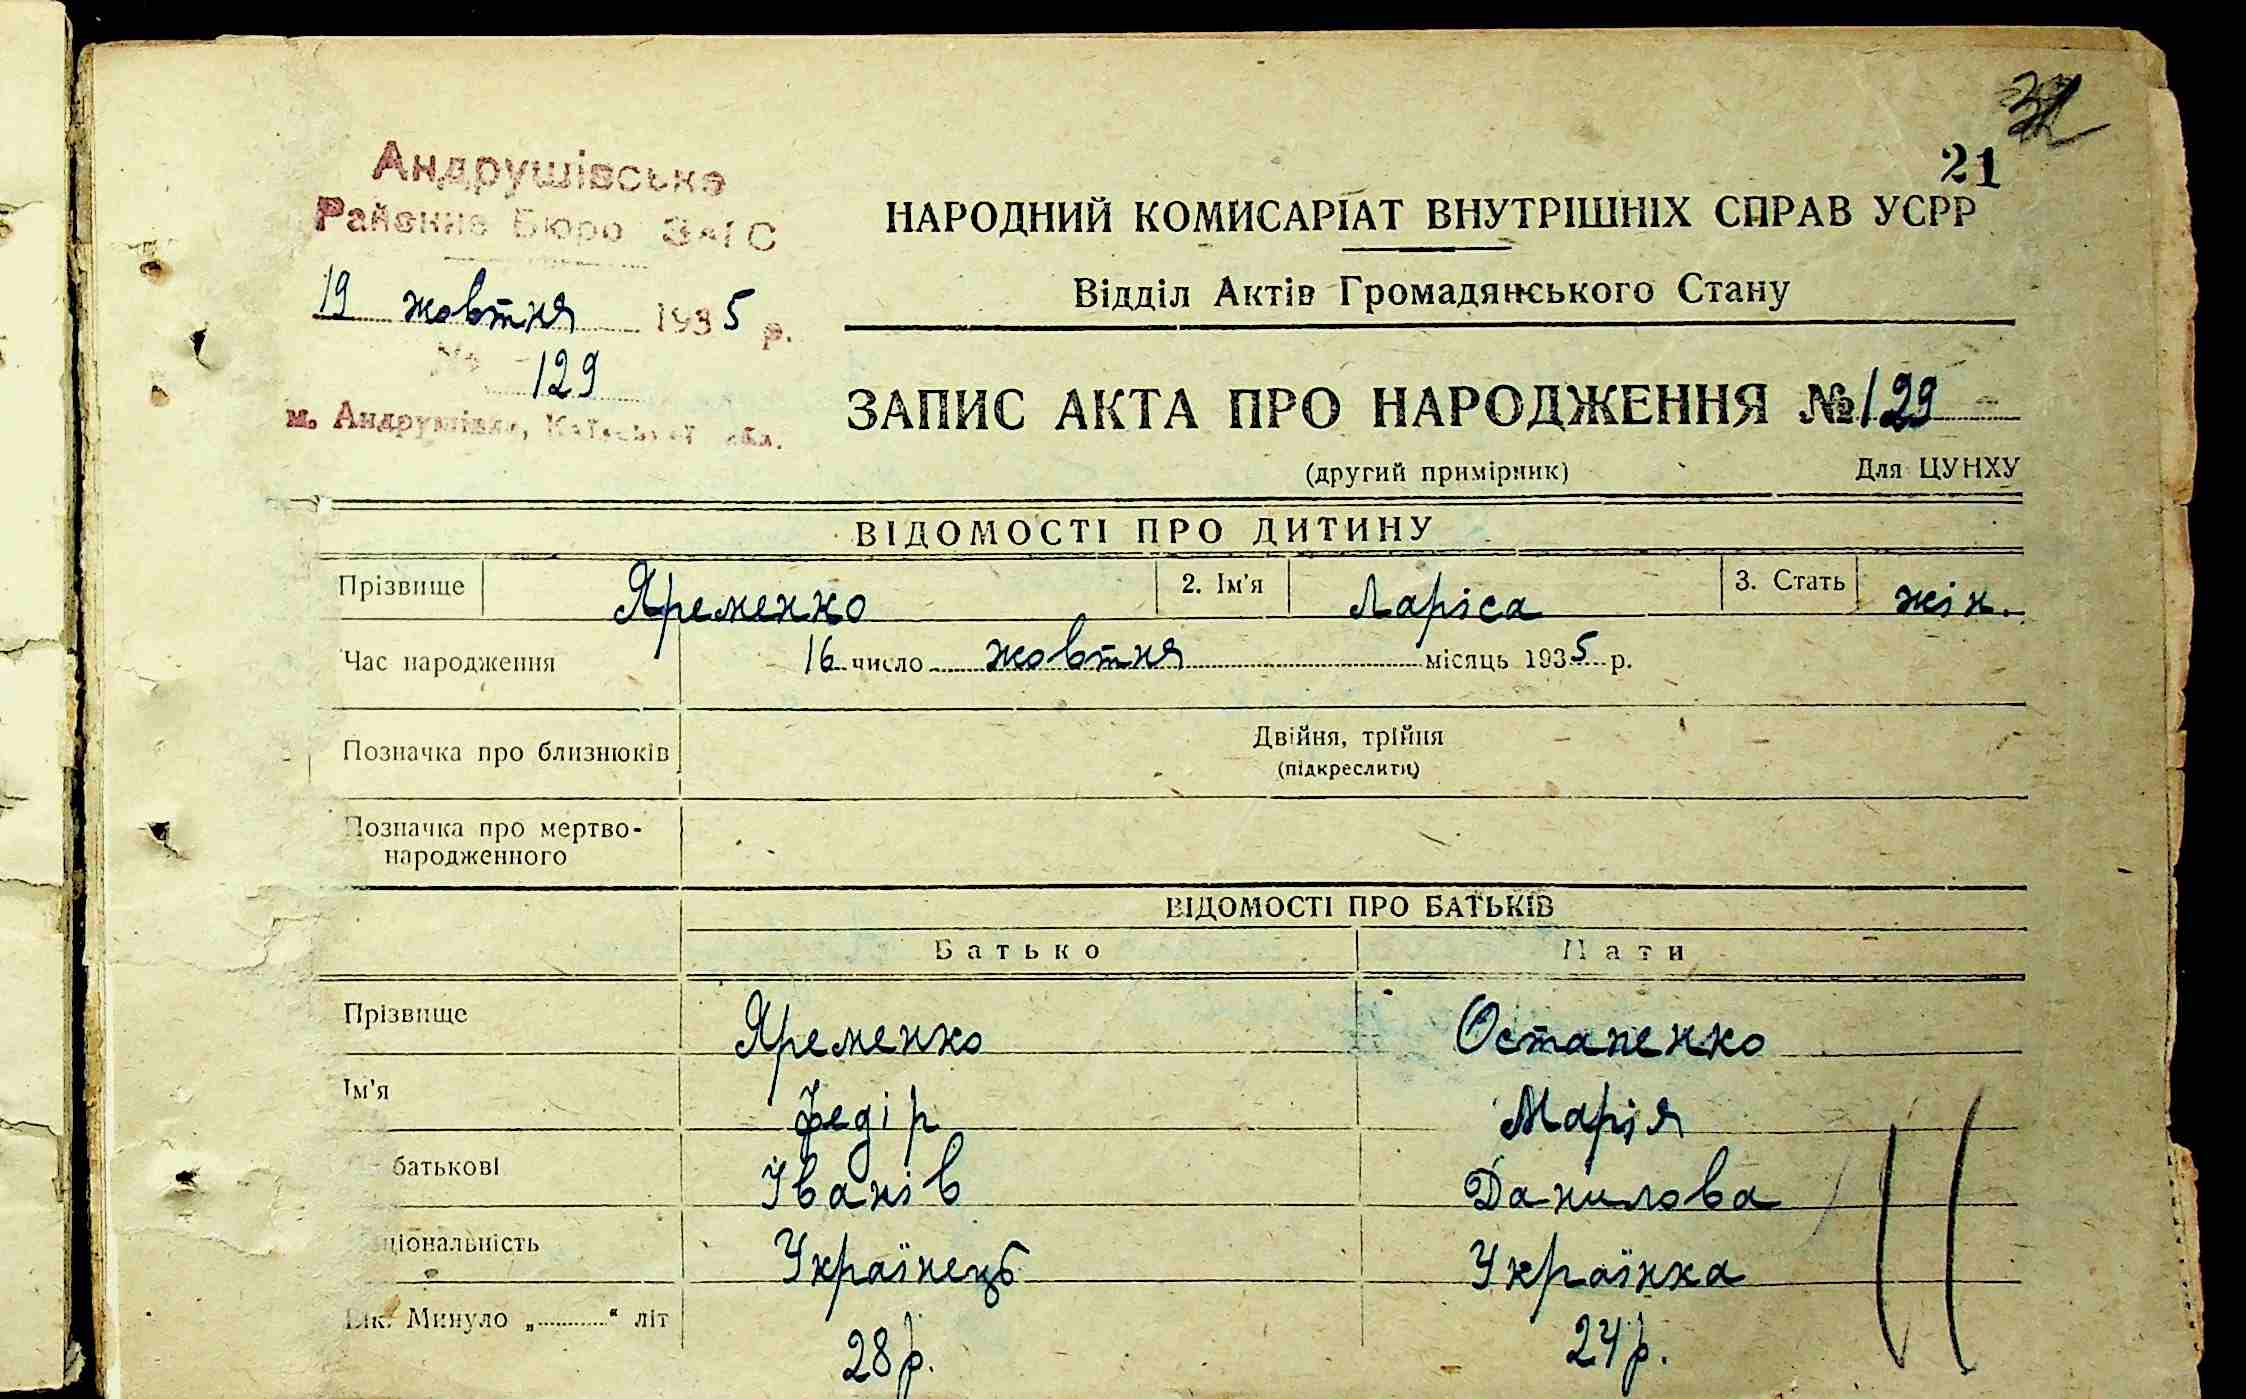 32
21
Андрушівське
Районне Бюро ЗАГС
19 жовтня 1935 р.
№ 129
м. Андрушівка, Київської обл.
НАРОДНИЙ КОМИСАРІАТ ВНУТРІШНІХ СПРАВ УСРР
Відділ Актів Громадянського Стану
ЗАПИС АКТА ПРО НАРОДЖЕННЯ № 129
(другий примірник) Для ЦУНХУ
ВІДОМОСТІ ПРО ДИТИНУ
Прізвище Яременко 2. Ім'я Ларіса 3. Стать жін.
Час народження 16 число жовтня місяць 1935 р.
Позначка про близнюків Двійня, трійня
(підкреслити)
Позначка про мертво-
народженного
ВІДОМОСТІ ПРО БАТЬКІВ
Батько Мати
Прізвище Яременко Остапенко
Ім'я Федір Марія
батькові Іванів Данилова
ціональність Українець Українка
Вік. Минуло „ “ літ 28 р. 24 р.